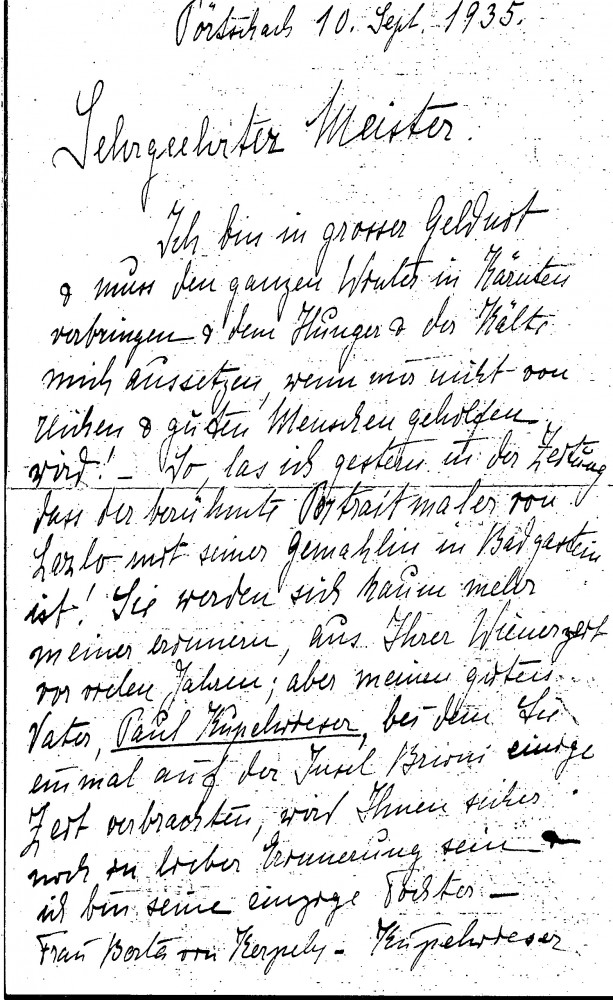 Pörtschach 10. Sept. 1935.
Sehrgeehrter Meister.
Ich bin in grosser Geldnot
& muss den ganzen Winter in Kärnten
verbringen & dem Hunger & der Kälte
mich aussetzen, wenn mir nicht von
reichen & guten Menschen geholfen
wird! – So, las ich gestern in der Zeitung
dass der berühmte Portraitmaler von
Lazlo mit seiner Gemahlin in Badgastein
ist! Sie werden sich kaum mehr
meiner erinnern, aus Ihrer Wienerzeit
vor vielen Jahren; aber meinen guten
Vater, Paul Kupelwieser, bei dem Sie
einmal auf der Insel Brioni einige
Zeit verbrachten, wird Ihnen sicher
noch in lieber Erinnerung sein –
ich bin seine einzige Tochter –
Frau Berta von Kerpely – Kupelwieser